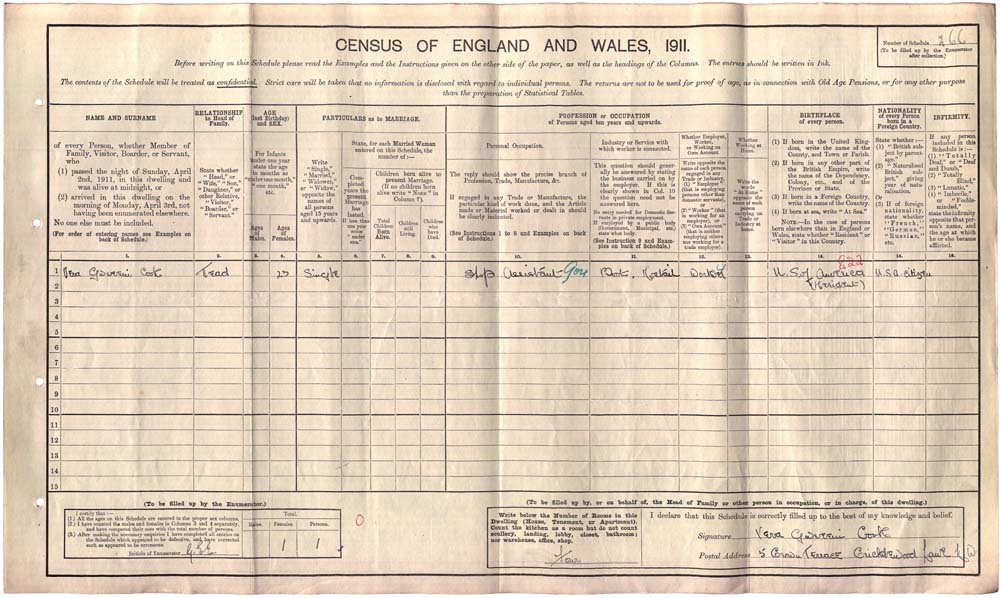 CENSUS OF ENGLAND AND WALES, 1911.
Number of Schedule 266
(To be filled up by the Enumerator
after collection.)
Before writing on this Schedule please read the Examples and the Instructions given on the other side of the paper, as well as the headings of the Columns. The entries should be written in Ink.
The contents of the Schedule will be treated as confidential. Strict care will be taken that no information is disclosed with regard to individual persons. The returns are not to be used for proof of age, as in connection with Old Age Pensions, or for any other purpose
than the preparation of Statistical Tables.
NAME AND SURNAME
of every Person, whether Member of
Family, Visitor, Boarder, or Servant,
who
(1) passed the night of Sunday, April
2nd, 1911, in this dwelling and
was alive at midnight, or
(2) arrived in this dwelling on the
morning of Monday, April 3rd, not
having been enumerated elsewhere.
No one else must be included.
(For order of entering names see Examples on
back of Schedule.)
RELATIONSHIP
to Head of
Family.
State whether
"Head," or
"Wife," "Son,"
"Daughter," or
other Relative,
"Visitor,"
"Boarder," or
"Servant."
AGE
(last Birthday)
and SEX.
For Infants
under one year
state the age
in months as
"under one month,"
"one month,"
etc.
Ages
of
Males.
Ages
of
Females.
PARTICULARS as to MARRIAGE.
Write
"Single,"
"Married,"
"Widower,"
or "Widow,"
opposite the
names of
all persons
aged 15 years
and upwards.
State, for each Married Woman
entered on this Schedule, the
number of:—
Completed
years the
present
Marriage
has
lasted.
If less than
one year
write
"under
one."
Children born alive to
present Marriage.
(If no children born
alive write "None" in
Column 7).
Total
Children
Born
Alive.
Children
still
Living.
Children
who
have
Died.
PROFESSION or OCCUPATION
of Persons aged ten years and upwards.
Personal Occupation.
The reply should show the precise branch of
Profession, Trade, Manufacture, &c.
If engaged in any Trade or Manufacture, the
particular kind of work done, and the Article
made or Material worked or dealt in should
be clearly indicated.
(See Instructions 1 to 8 and Examples on back
of Schedule.)
Industry or Service with
which worker is connected.
This question should generally
be answered by stating
the business carried on by
the employer. If this is
clearly shown in Col. 10
the question need not be
answered here.
No entry needed for Domestic Servants
in private employment.
If employed by a public body
(Government, Municipal, etc.)
state what body.
(See Instruction 9 and Examples
on back of Schedule.)
Whether Employer,
Worker,
or Working on
Own Account.
Write opposite the
name of each person
engaged in any
Trade or Industry,
(1) "Employer"
(that is employing
persons other than
domestic servants),
or
(2) "Worker" (that
is working for an
employer), or
(3) "Own Account"
(that is neither
employing others
nor working for a
trade employer).
Whether
Working at
Home.
Write the
words
"At Home"
opposite the
name of each
person
carrying on
Trade or
Industry at
home.
BIRTHPLACE
of every person.
(1) If born in the United Kingdom,
write the name of the
County, and Town or Parish.
(2) If born in any other part of
the British Empire, write
the name of the Dependency,
Colony, etc., and of the
Province or State.
(3) If born in a Foreign Country,
write the name of the Country.
(4) If born at sea, write "At Sea."
NOTE.—In the case of persons
born elsewhere than in England or
Wales, state whether "Resident" or
"Visitor" in this Country.
NATIONALITY
of every Person
born in a
Foreign Country.
State whether:—
(1) "British subject
by parentage."
(2) "Naturalised
British subject,"
giving
year of naturalisation.
Or
(3) If of foreign
nationality,
state whether
"French,"
"German,"
"Russian,"
etc.
INFIRMITY.
If any person
included in this
Schedule is:—
(1) "Totally
Deaf," or "Deaf
and Dumb,"
(2) "Totally
Blind,"
(3) "Lunatic,"
(4) "Imbecile,"
or "Feeble-minded,"
state the infirmity
opposite that person's
name, and
the age at which
he or she became
afflicted.
1. 2. 3. 4. 5. 6. 7. 8. 9. 10. 11. 12. 13. 14. 15. 16.
1 Vera Cook Head Single Shop Assistant Boot Retail Worker U.S. of America U.S.A. citizen
822
(Resident)
2
3
4
5
6
7
8
9
10
11
12
13
14
15
(To be filled up by the Enumerator.)
I certify that:—
(1.) All the ages on this Schedule are entered in the proper sex columns.
(2.) I have counted the males and females in Columns 3 and 4 separately,
and have compared their sum with the total number of persons.
(3.) After making the necessary enquiries I have completed all entries on
the Schedule which appeared to be defective, and have corrected
such as appeared to be erroneous.
Initials of Enumerator
Total.
Males. Females. Persons.
1 1
0
(To be filled up by, or on behalf of, the Head of Family or other person in occupation, or in charge, of this dwelling.)
Write below the Number of Rooms in this
Dwelling (House, Tenement, or Apartment).
Count the kitchen as a room but do not count
scullery, landing, lobby, closet, bathroom;
nor warehouse, office, shop.
I declare that this Schedule is correctly filled up to the best of my knowledge and belief.
Signature Vera Cook
Postal Address 5 Terrace Cricklewood Lane N.W